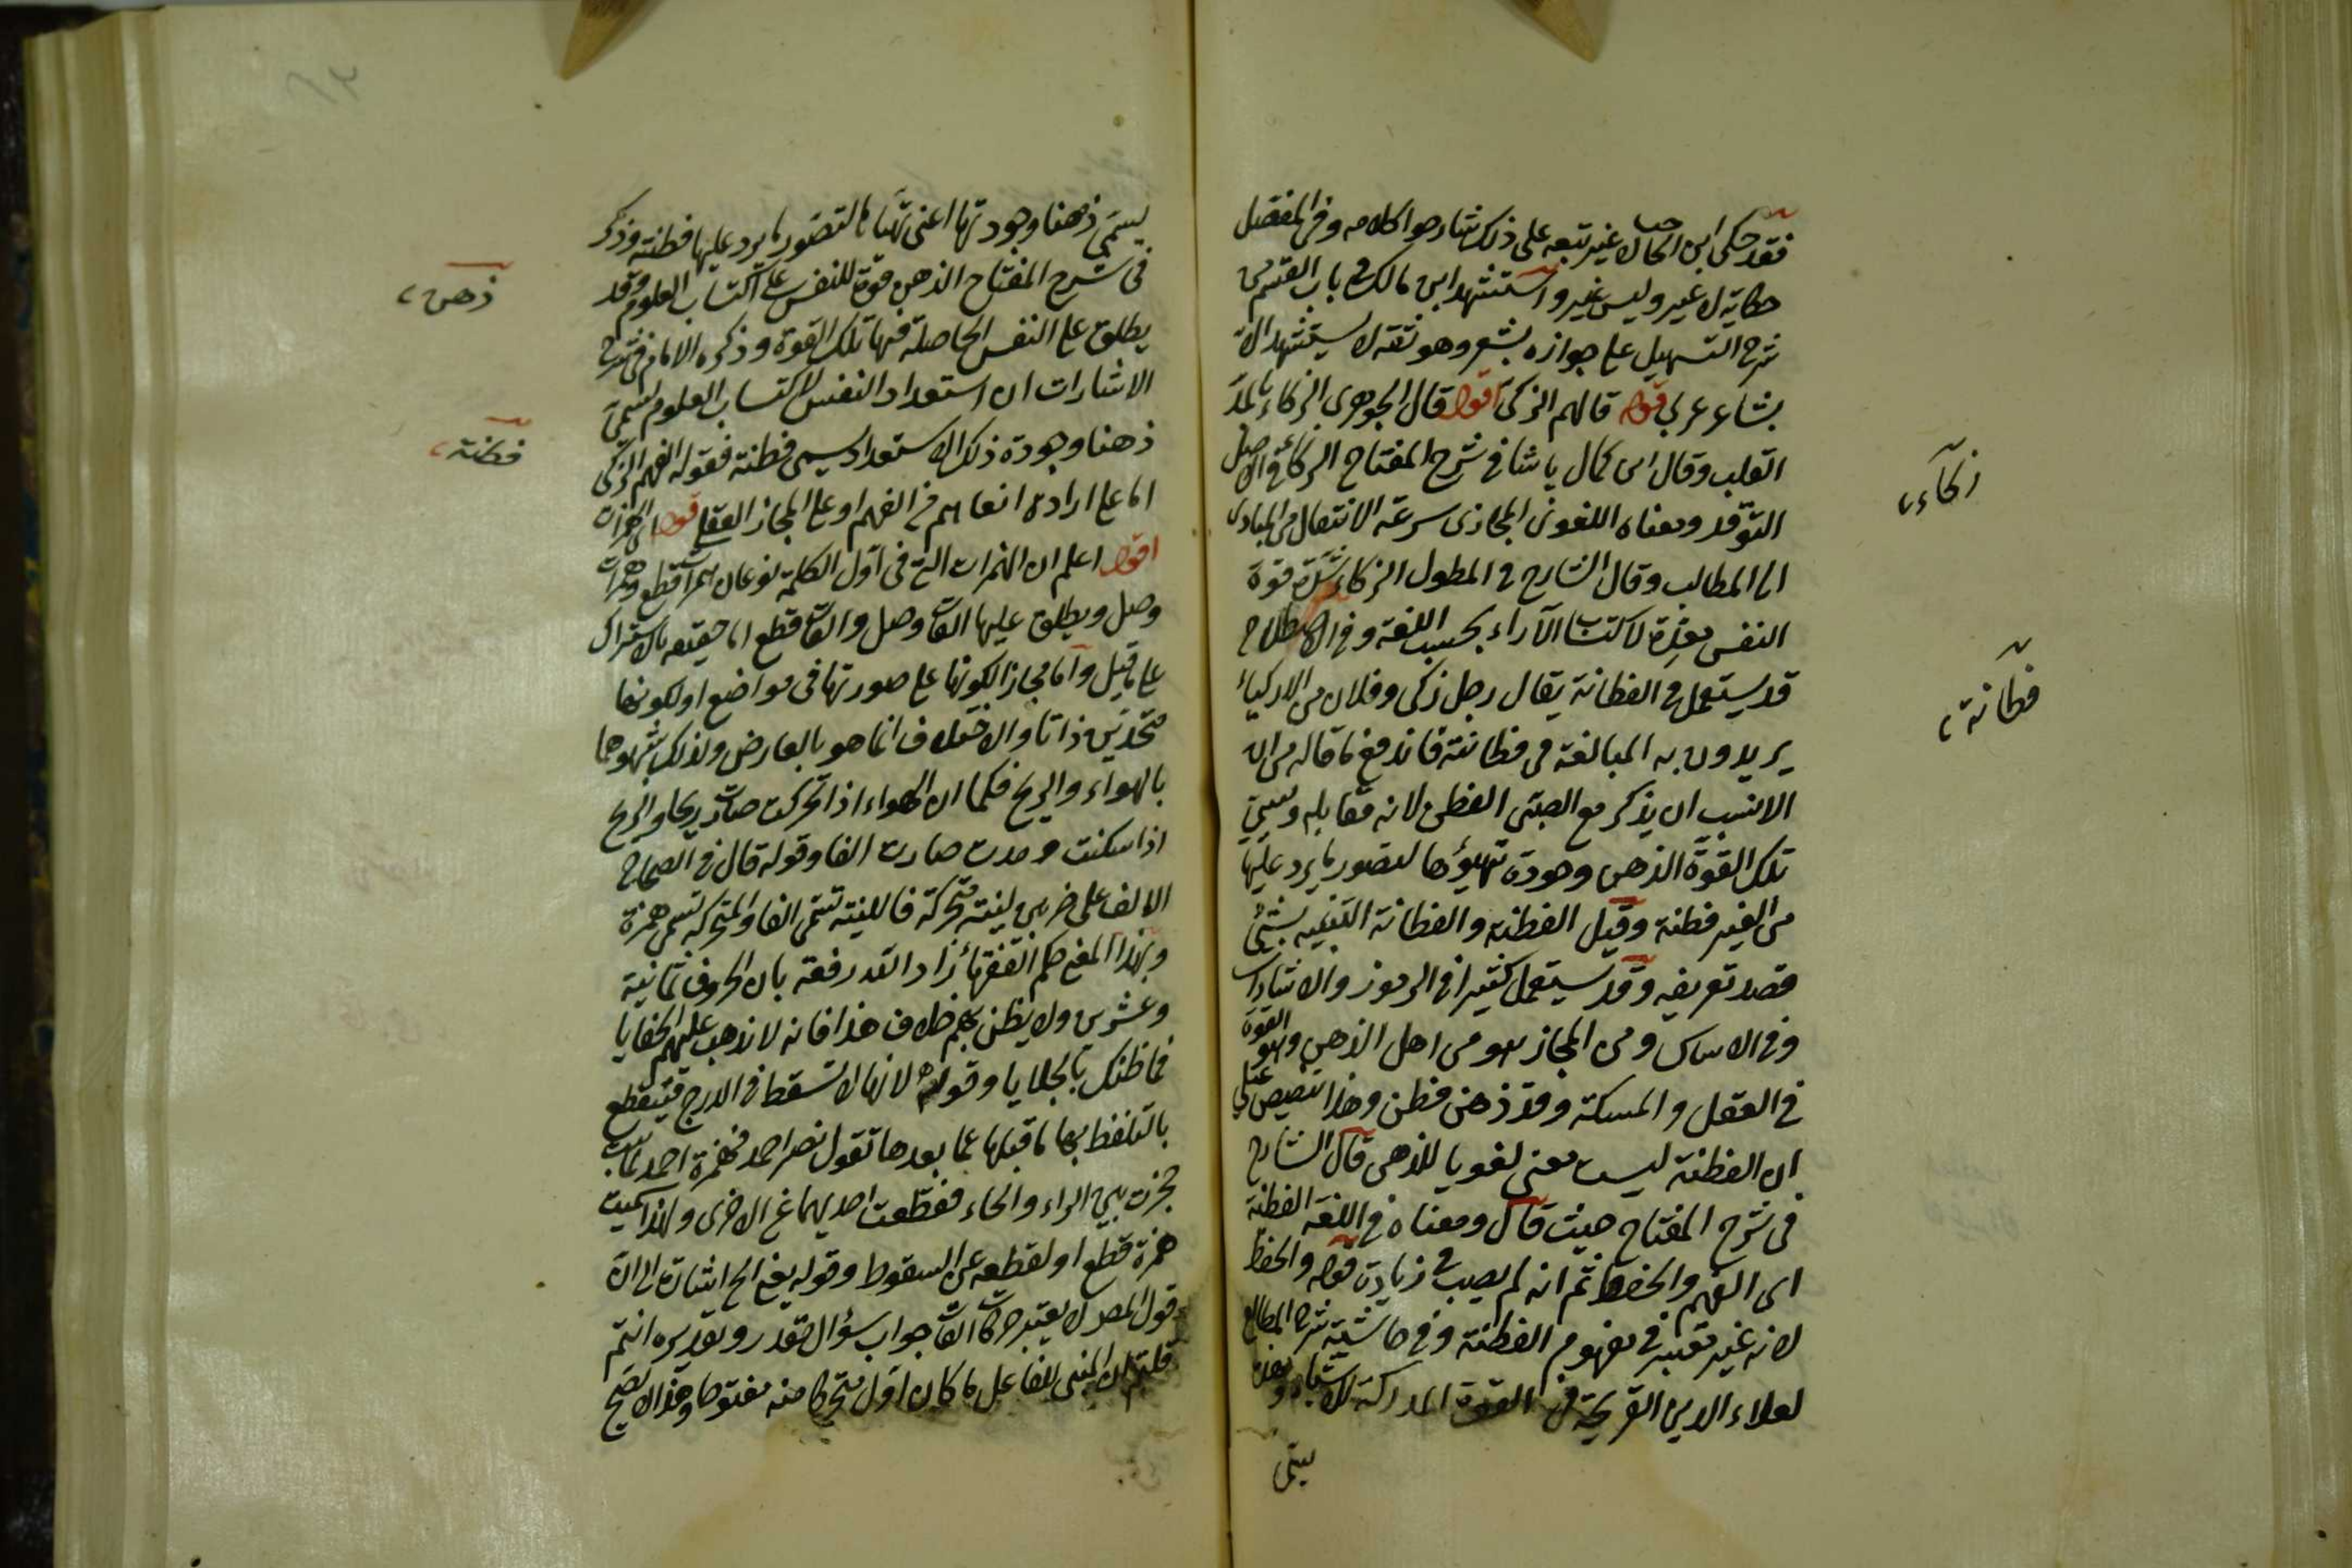 فقد حكى ابن الحاجب لا غير تبعه على ذلك شارحوا كلامه وفى المفصل
حكاية لا غير وليس غير واستشهد ابن مالك فى باب القسم من
شرح التسهيل على جوازه بشعر وهو ثقة لا يستشهد الا
بشاعر عربى قوله قالهم الزكى اقول قال الجوهرى الزكاء بالمد
القلب وقال ابن كمال باشا فى شرح المفتاح الزكاء فى الاصل
التوقد ومعناه اللغوى المجازى سرعة الانتقال من المبادى
الى المطالب وقال الشارح فى المطول الزكاء شدة قوة
النفس معدة لاكتساب الآراء بحسب اللغة وفى الاصطلاح
قد يستعمل فى الفطانة يقال رجل زكى وفلان من الازكياء
يريدون به المبالغة فى فطانته فاندفع ما قاله من ان
الانسب ان يذكر مع الصبى الفطن لانه مقابله وسمى
تلك القوة الذهن وجودة تهيؤها لتصور ما يرد عليها
من الغير فطنة وقيل الفطنة والفطانة التنبيه بشئ
قصد تعريفه وقد يستعمل كثيرا فى الرموز والاشارات
وفى الاساس ومن المجاز هو من اهل الذهن وهو القوة
فى العقل والمسكة وقد ذهن فطن وهذا تنصيص على
ان الفطنة ليست معنى لغويا للذهن قال الشارح
فى شرح المفتاح حيث قال ومعناه فى اللغة الفطنة
اى الفهم والحفظ ثم انه لم يصب فى زيادة قوله والحفظ
لانه غير معتبر فى مفهوم الفطنة وفى حاشية شرح المطالع
لعلاء الدين القريحة هى القوة المدركة للاشياء
يسمى
زكاء
فطانة
يسمى ذهنا وجودتها اعنى تهيأها لتصور ما يرد عليها فطنة وذكر
فى شرح المفتاح الذهن قوة للنفس على اكتساب العلوم وقد
يطلق على النفس الحاصلة فيها تلك القوة وذكره الامام فى شرح
الاشارات ان استعداد النفس لاكتساب العلوم يسمى
ذهنا وجودة ذلك الاستعداد يسمى فطنة فقوله الفهم الزكى
اما على ارادة فى الفهم او على المجاز العقلى قوله
اقول اعلم ان الهمزات التى فى اول الكلمة نوعان همزات قطع وهمزات
وصل ويطلق عليها الفات وصل والفات قطع اما حقيقة بالاشتراك
على ما قيل واما مجازا لكونها على صورتها فى مواضع او لكونها
متحدين ذاتا والاختلاف انما هو بالعارض ولذلك شبهوهما
بالهواء والريح فكما ان الهواء اذا تحركت صارت ريحا والريح
اذا سكنت ومدت صارت الفا وقوله قال فى الصحاح
الالف على ضربين لينة ومتحركة فاللينة تسمى الفا والمتحركة تسمى همزة
وبهذا المعنى حكم الفقهاء زاد الله قدر فقه بان الحروف ثمانية
وعشرين ولا يظن بهم خلاف هذا فانه لا تذهب عليهم الخفايا
فما ظنك بالجلايا وقوله لانها لا تسقط فى الدرج فينقطع
بالتلفظ بها ما قبلها عما بعدها تقول نصر احمد فهمزة احمد
حجزت بين الراء والحاء فقطعت احديهما عن الاخرى ولهذا سميت
همزة قطع او لقطعه عن السقوط وقوله يفتح الخ اشارة الى ان
قول المص لا يعتبر حركات الفات جواب سؤال مقدر وتقديره انتم
قلتم ان المبنى للفاعل ما كان اول متحرك منه مفتوحا وهذا لا يصح
ذهن
فطنة